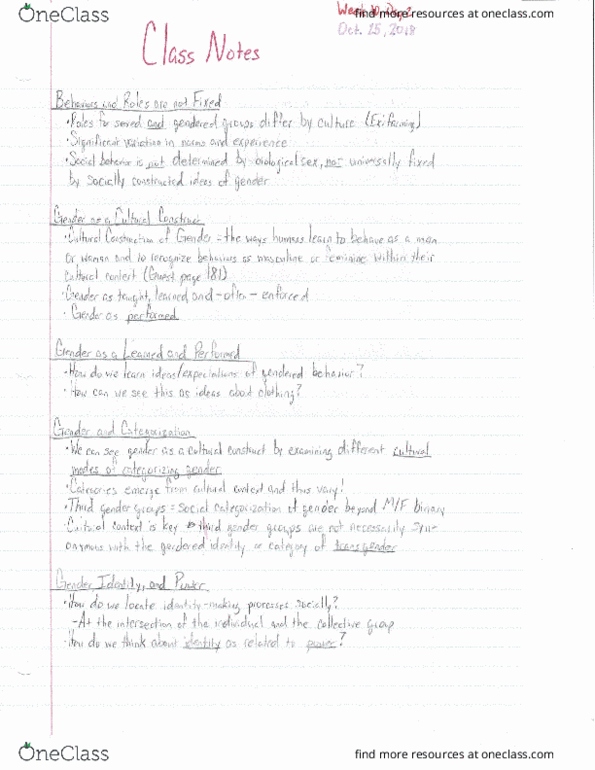 OneClass
find more resources at oneclass.com
Oct. 15, 2018
Class Notes
Behaviors and Roles are not Fixed
• Roles for sexed and gendered groups differ by culture (Ex: farming)
• Significant variation in norms and experience
• Social behavior is not determined by biological sex, nor universally fixed
by socially constructed ideas of gender
Gender as a Cultural Construct
• Cultural Construction of Gender - the ways humans learn to behave as a man
or woman and to recognize behaviors as masculine or feminine within their
cultural context (Guest page 181)
• Gender as taught, learned and - often - enforced
• Gender as performed
Gender as a Learned and Performed
• How do we learn ideas/expectations of gendered behavior?
• How can we see this as ideas about clothing?
Gender and Categorization
• We can see gender as a cultural construct by examining different cultural
modes of categorizing gender
• Categories emerge from cultural context and thus vary!
• Third gender groups = social categorization of gender beyond M/F binary
• Cultural context is key → third gender groups are not necessarily syn-
onymous with the gendered identity or category of transgender
Gender, Identity, and Power
• How do we locate identity-making processes socially?
- At the intersection of the individual and the collective group
• How do we think about identity as related to power?
OneClass
find more resources at oneclass.com